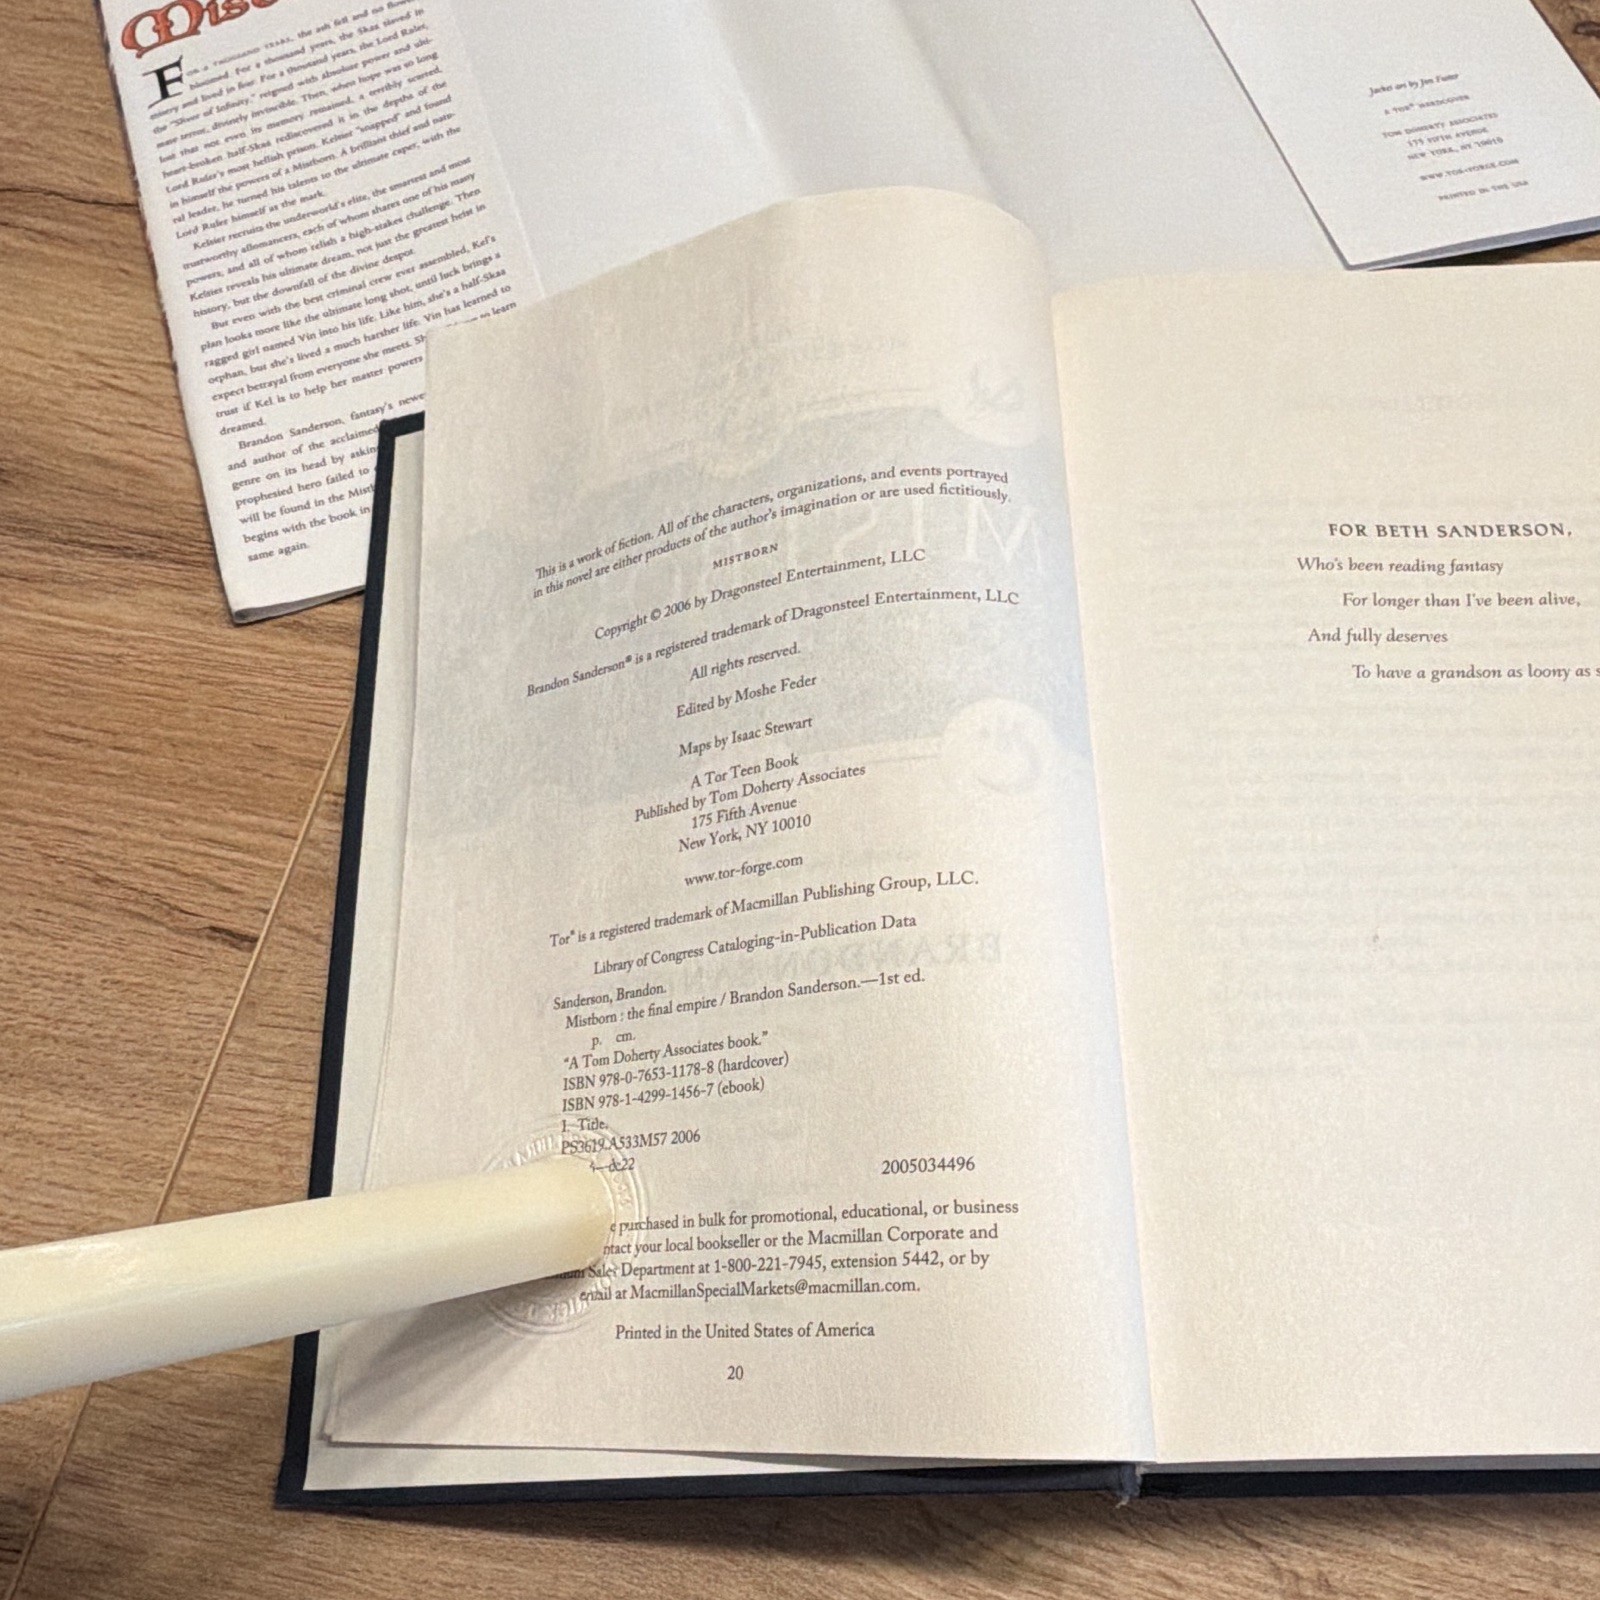 Mist
FOR A THOUSAND YEARS, the ash fell and no flowers
bloomed. For a thousand years, the Skaa slaved in
misery and lived in fear. For a thousand years, the Lord Ruler,
the "Sliver of Infinity," reigned with absolute power and ulti-
mate terror, divinely invincible. Then, when hope was so long
lost that not even its memory remained, a terribly scarred,
heart-broken half-Skaa rediscovered it in the depths of the
Lord Ruler's most hellish prison. Kelsier "snapped" and found
in himself the powers of a Mistborn. A brilliant thief and natu-
ral leader, he turned his talents to the ultimate caper, with the
Lord Ruler himself as the mark.
Kelsier recruits the underworld's elite, the smartest and most
trustworthy allomancers, each of whom shares one of his many
powers, and all of whom relish a high-stakes challenge. Then
Kelsier reveals his ultimate dream, not just the greatest heist in
history, but the downfall of the divine despot.
But even with the best criminal crew ever assembled, Kel's
plan looks more like the ultimate long shot, until luck brings a
ragged girl named Vin into his life. Like him, she's a half-Skaa
orphan, but she's lived a much harsher life. Vin has learned to
expect betrayal from everyone she meets. to learn
trust if Kel is to help her master powers
dreamed.
Brandon Sanderson, fantasy's newe
and author of the acclaimed
genre on its head by askin
prophesied hero failed to
will be found in the Mistb
begins with the book in
same again.
Jacket art by Jon Foster
A TOR® HARDCOVER
TOM DOHERTY ASSOCIATES
175 FIFTH AVENUE
NEW YORK, NY 10010
WWW.TOR-FORGE.COM
PRINTED IN THE USA
This is a work of fiction. All of the characters, organizations, and events portrayed
in this novel are either products of the author's imagination or are used fictitiously.
MISTBORN
Copyright © 2006 by Dragonsteel Entertainment, LLC
Brandon Sanderson® is a registered trademark of Dragonsteel Entertainment, LLC
All rights reserved.
Edited by Moshe Feder
Maps by Isaac Stewart
A Tor Teen Book
Published by Tom Doherty Associates
175 Fifth Avenue
New York, NY 10010
www.tor-forge.com
Tor® is a registered trademark of Macmillan Publishing Group, LLC.
Library of Congress Cataloging-in-Publication Data
Sanderson, Brandon.
Mistborn : the final empire / Brandon Sanderson.—1st ed.
p. cm.
"A Tom Doherty Associates book."
ISBN 978-0-7653-1178-8 (hardcover)
ISBN 978-1-4299-1456-7 (ebook)
I. Title.
PS3619.A533M57 2006
—dc22
2005034496
e purchased in bulk for promotional, educational, or business
ntact your local bookseller or the Macmillan Corporate and
Sales Department at 1-800-221-7945, extension 5442, or by
email at MacmillanSpecialMarkets@macmillan.com.
Printed in the United States of America
20
FOR BETH SANDERSON,
Who's been reading fantasy
For longer than I've been alive,
And fully deserves
To have a grandson as loony as s